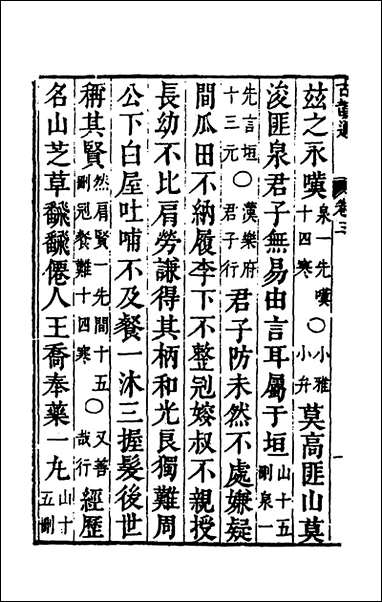 古韻通 卷三 一
玆之永嘆泉一先嘆十四寒〇小雅小弁莫高匪山莫
浚匪泉君子無易由言耳屬于垣山十五刪泉一
先言垣十三元〇漢樂府君子行君子防未然不處嫌疑
間瓜田不納履李下不整冠嫂叔不親授
長幼不比肩勞謙得其柄和光良獨難周
公下白屋吐哺不及餐一沐三握髮後世
稱其賢然肩賢一先間十五刪冠餐難十四寒〇又善哉行經歷
名山芝草飜飜僊人王喬奉藥一丸山十五刪